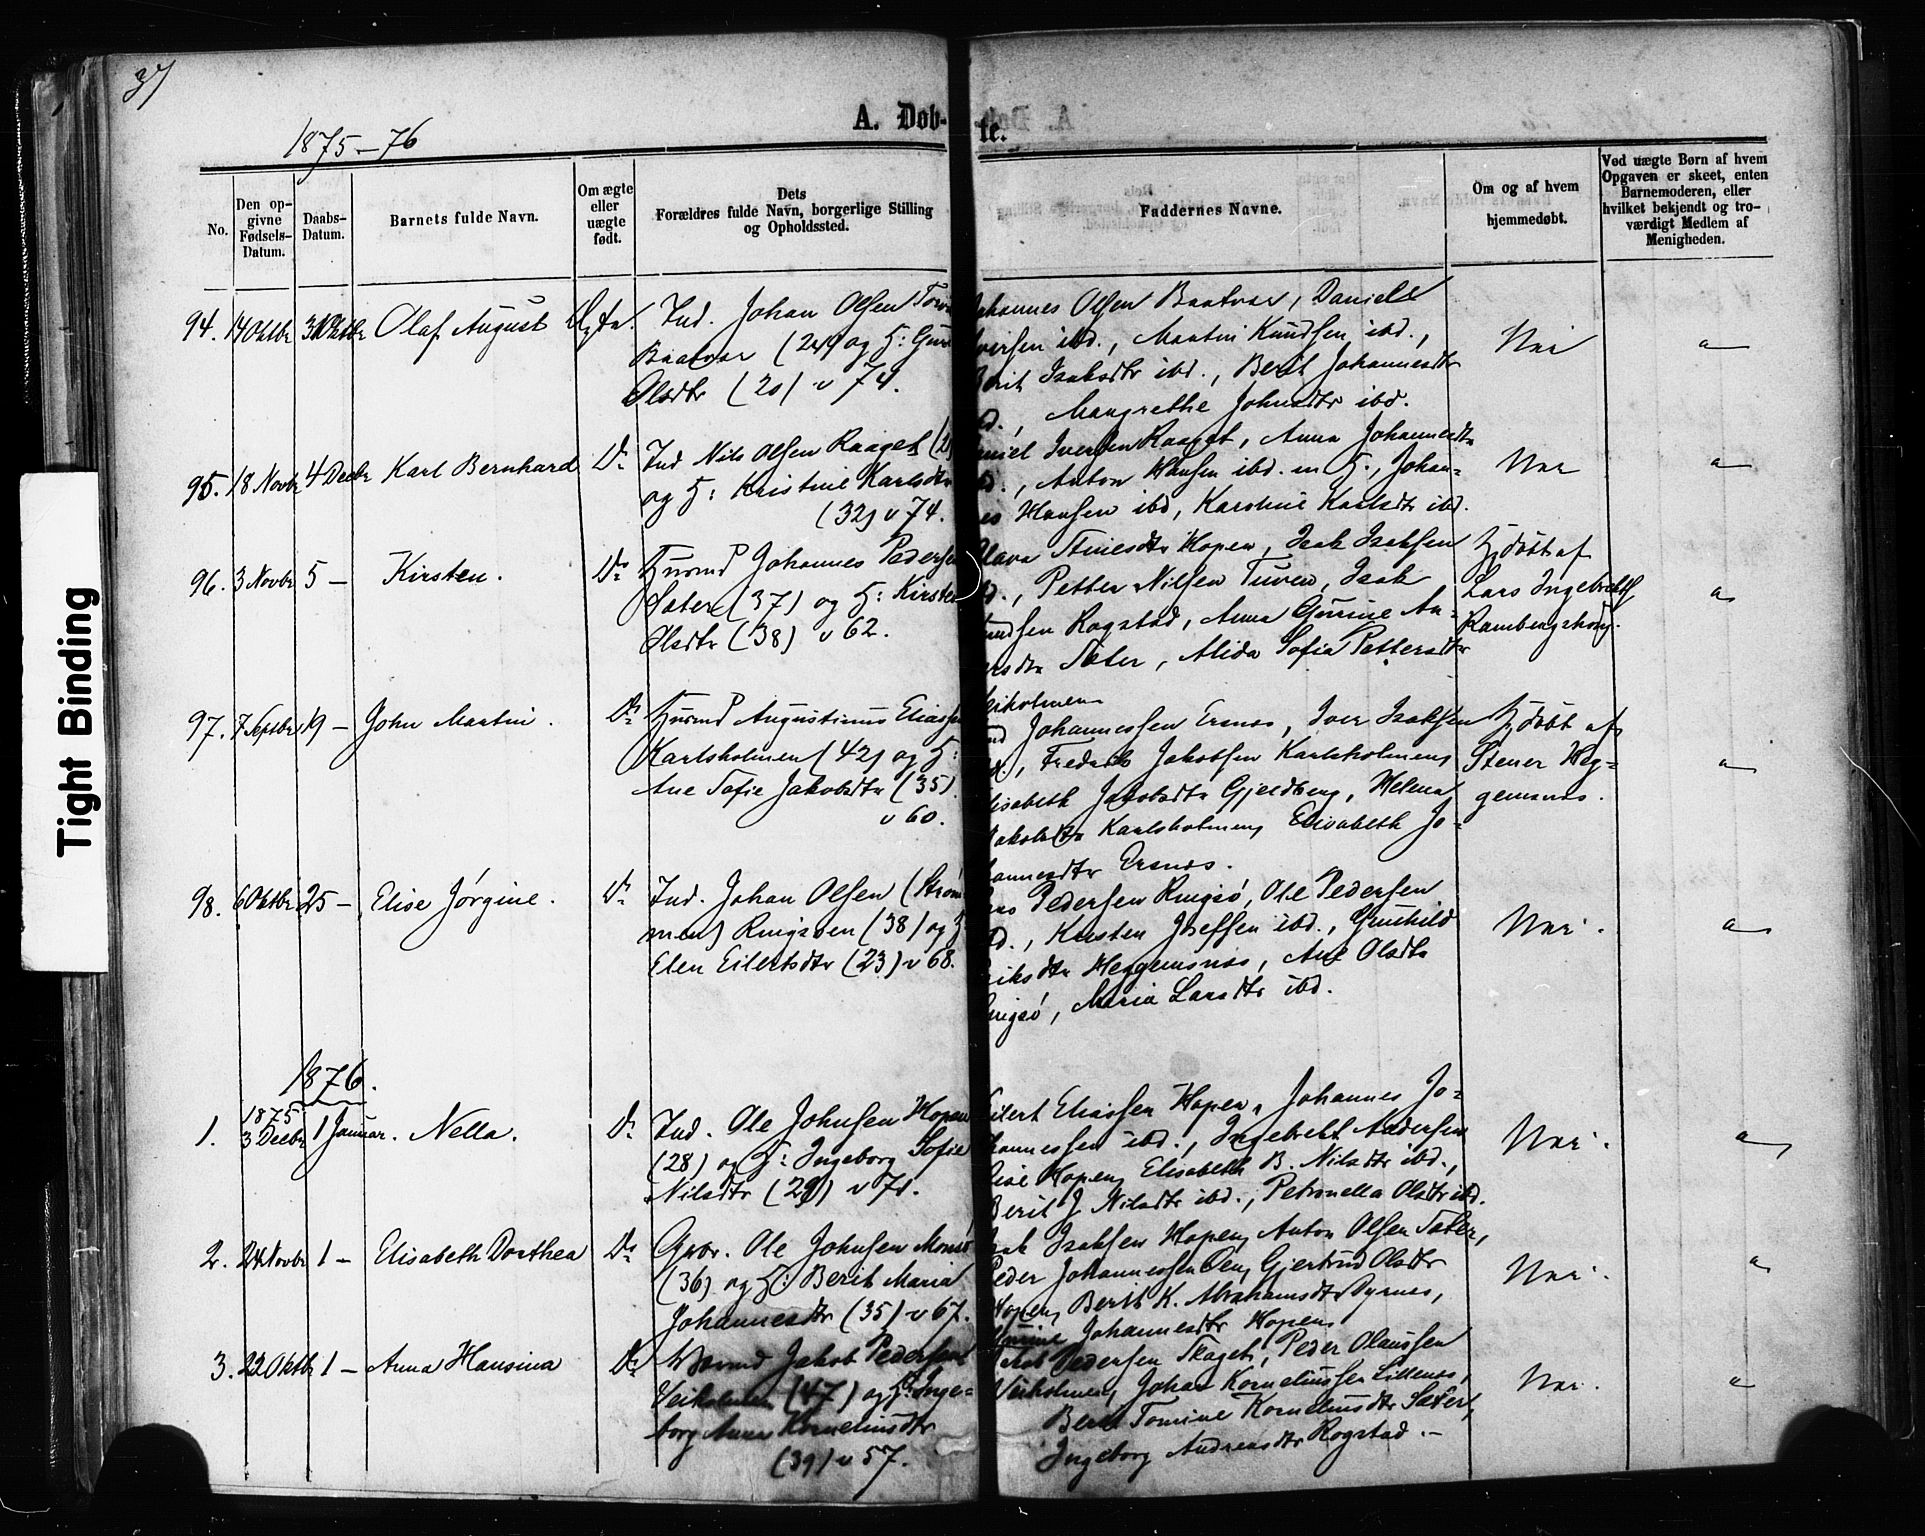 37
A. Døb-
te.
1875-76
No.
Den op-
givne
Fødsels-
Datum.
Daabs-
Datum.
Barnets fulde Navn.
Om ægte
eller
uægte
født.
Dets
Forældres fulde Navn, borgerlige Stilling
og Opholdssted.
Faddernes Navne.
Om og af hvem
hjemmedøbt.
Ved uægte Børn af hvem
Opgaven er skeet, enten
Barnemoderen, eller
hvilket bekjendt og tro-
værdigt Medlem af
Menigheden.
94. 14 Oktbr 31 Oktbr Olaf August Ægte. Ind. Johan Olsen
Baatvar (24) og H: Guru
Olsdtr (20) v 74.
Johannes Olsen Baatvar, Daniel
Iversen ibd., Martin Knudsen ibd.,
Berit Isaksdtr ibd., Berit Johannesdtr
ibd., Mangrethe Johnsdtr ibd.
Nei
95. 18 Novbr 4 Decbr Karl Bernhard Do Ind Nils Olsen Raaget
og H: Kristine Karlsdtr
(32) v 74.
Daniel Iversen Raaget, Anna Johannesdtr
ibd., Anton Hansen ibd. m H., Johan-
nes Hansen ibd, Karstine Karlsdtr ibd.
Nei
96. 3 Novbr 5 - Kirsten. Do Husmd Johannes Pedersen
Sæter (37) og H: Kirsten
Olsdtr (38) v 62.
Olava Stinesdtr Hopen, Isak Isaksen
ibd., Petter Nilsen Tuven, Isak
Knudsen Rogstad, Anna Gurine An-
dersdtr Sæter, Alida Sofia Pettersdtr
Veiholmen
Hjdøbt af
Lars Ingebrektsen
Rambergshaug.
97. 7 Septbr 19 - John Martin. Do Husmd Augustinus Eliassen
Karlsholmen (42) og H:
Ane Sofie Jakobsdtr (35)
v 60.
Johannessen Ersnes, Iver Isaksen
ibd., Fredrik Jakobsen Karlsholmen,
Elisabeth Jakobsdtr Gjeldberg, Helena
Jakobsdtr Karlsholmen, Elisabeth Jo-
hannesdtr Ersnes.
Hjdøbt af
Stener Heg-
gemsnes.
98. 6 Oktbr 25 - Elise Jørgine. Do Ind. Johan Olsen (Strøm-
men) Ringsøen (38) og H:
Elen Eilertsdtr (23) v 68.
Pedersen Ringsø, Ole Pedersen
ibd., Kirsten Josefsen ibd., Gunhild
Eriksdtr Heggemsnes, Ane Olsdtr
Ringsø, Maria Larsdtr ibd.
Nei.
1876.
1875
1. 3 Decbr 1 Januar. Nella. Do Ind. Ole Johnsen Hopen
(28) og H: Ingeborg Sofie
Nilsdtr (29) v 71.
Eilert Eliassen Hopen, Johannes Jo-
hannessen ibd., Ingebrekt Andersen
Hopen, Elisabeth B. Nilsdtr ibd.,
Berit J Nilsdtr ibd., Petronella Olsdtr ibd.
Nei.
2. 24 Novbr 1 - Elisabeth Dorthea Do Gbr. Ole Johnsen
(36) og H: Berit Maria
Johannesdtr (35) v 67.
Isak Isaksen Hopen, Anton Olsen Sæter,
Peder Johannessen Øen, Gjertrud Olsdtr
Hopen, Berit K. Abrahamsdtr Dyrnes,
Johannesdtr Hopen
Nei.
3. 22 Oktbr 1 - Anna Hansina Do Jakob Pedersen
Veiholmen (47) og H: Inge-
borg Anna Korneliusdtr
(39) v 57.
Jakob Pedersen Skaget, Peder Olaussen
Veiholmen, Johan Korneliussen Lillenes,
Berit Tomine Korneliusdtr Sæter,
Ingeborg Andreasdtr Rogstad. -
Nei.
Tight Binding